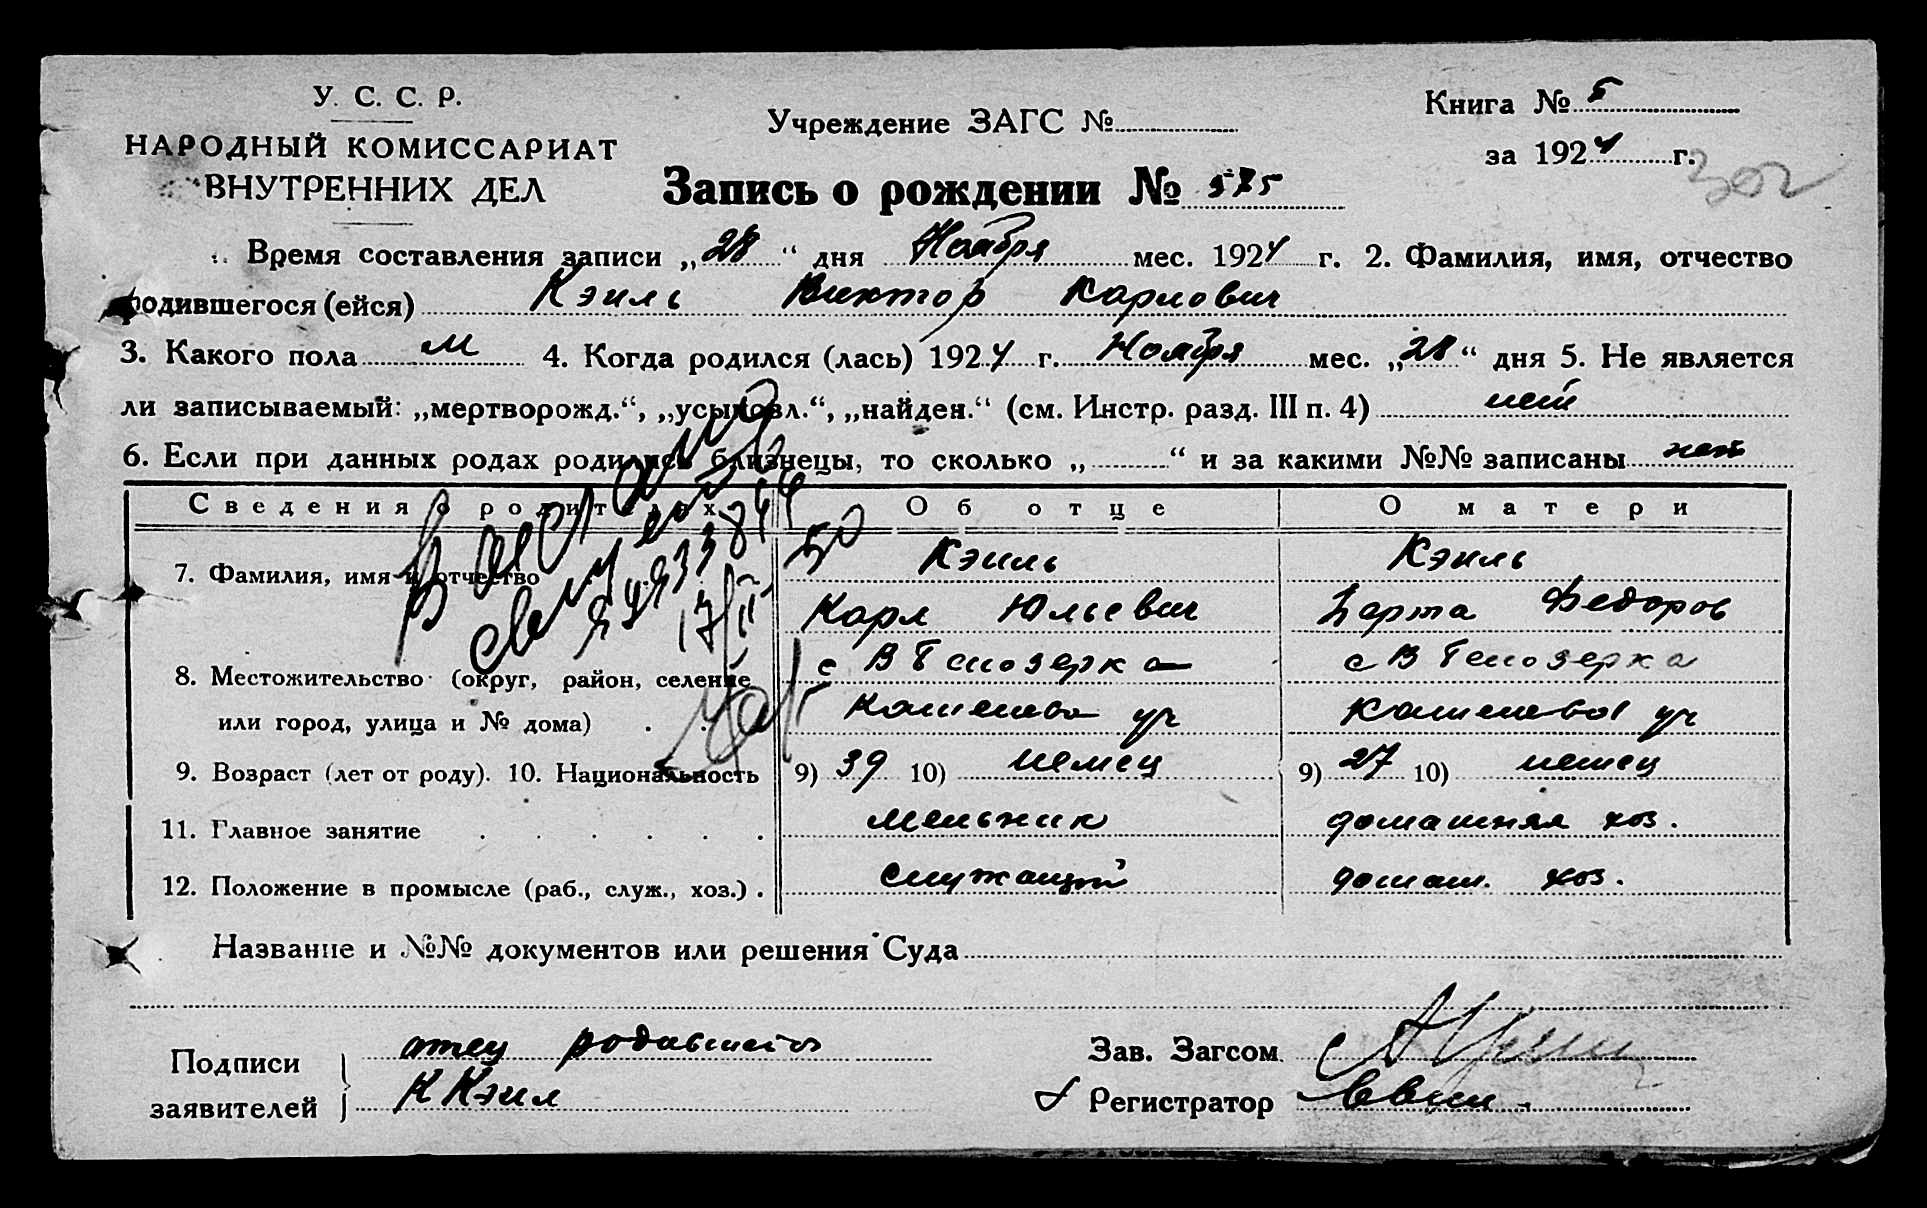 У. С. С. Р.
НАРОДНЫЙ КОМИССАРИАТ
ВНУТРЕННИХ ДЕЛ
Учреждение ЗАГС №
Книга № 5
за 1924 г.
302
Запись о рождении № 575
Время составления записи „28“ дня Ноября мес. 1924 г. 2. Фамилия, имя, отчество
родившегося (ейся) Кэиль Виктор Карлович
3. Какого пола м 4. Когда родился (лась) 1924 г. Ноября мес. „28“ дня 5. Не является
ли записываемый: „мертворожд.“, „усыновл.“, „найден.“ (см. Инстр. разд. III п. 4) нет
6. Если при данных родах родились близнецы, то сколько „ “ и за какими №№ записаны нет
Сведения о родителях Об отце О матери
7. Фамилия, имя и отчество Кэиль Кэиль
Карл Юльевич Берта Федоров
8. Местожительство (округ, район, селение с В Белозерка с В Белозерка
или город, улица и № дома) уч уч
9. Возраст (лет от роду). 10. Национальность 9) 39 10) немец 9) 27 10) немец
11. Главное занятие мельник домашняя хоз.
12. Положение в промысле (раб., служ., хоз.) служащий домаш. хоз.
Название и №№ документов или решения Суда
Подписи
заявителей
отец родившегося
К Кэил
Зав. Загсом
Регистратор